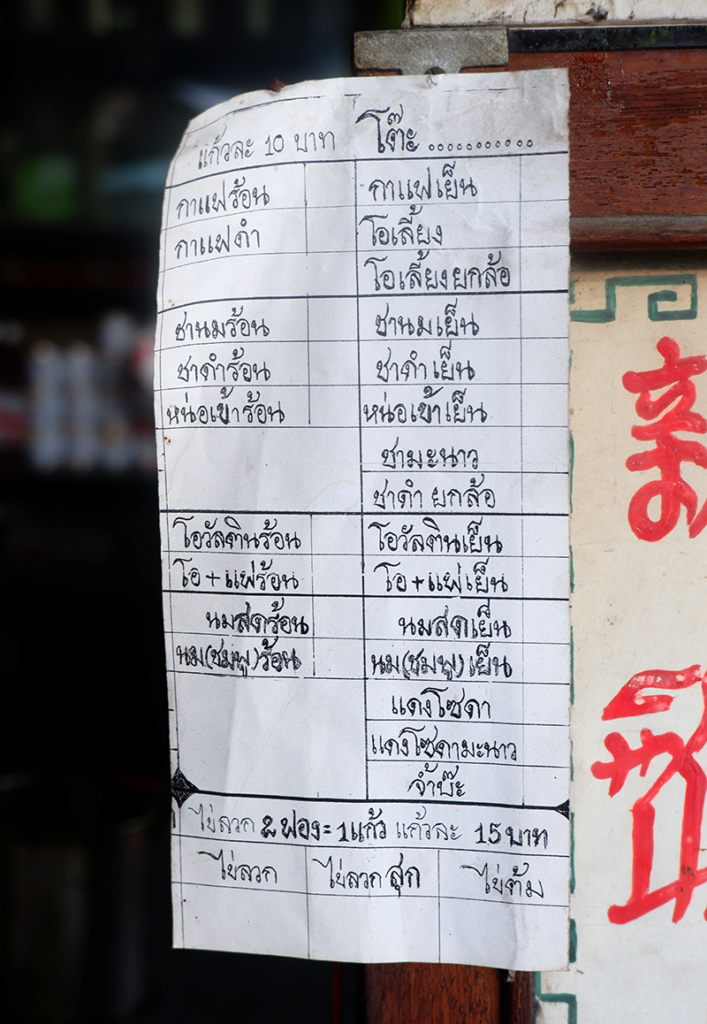 แก้วละ 10 บาท โต๊ะ ...........
กาแฟร้อน กาแฟเย็น
กาแฟดำ โอเลี้ยง
โอเลี้ยงยกล้อ
ชานมร้อน ชานมเย็น
ชาดำร้อน ชาดำเย็น
หน่อเข้าร้อน หน่อเข้าเย็น
ชามะนาว
ชาดำ ยกล้อ
โอวัลตินร้อน โอวัลตินเย็น
โอ+แฟร้อน โอ+แฟเย็น
นมสดร้อน นมสดเย็น
นม(ชมพู)ร้อน นม(ชมพู)เย็น
แดงโซดา
แดงโซดามะนาว
จ้ำบ๊ะ
ไข่ลวก 2 ฟอง=1แก้ว แก้วละ 15 บาท
ไข่ลวก ไข่ลวก สุก ไข่ต้ม